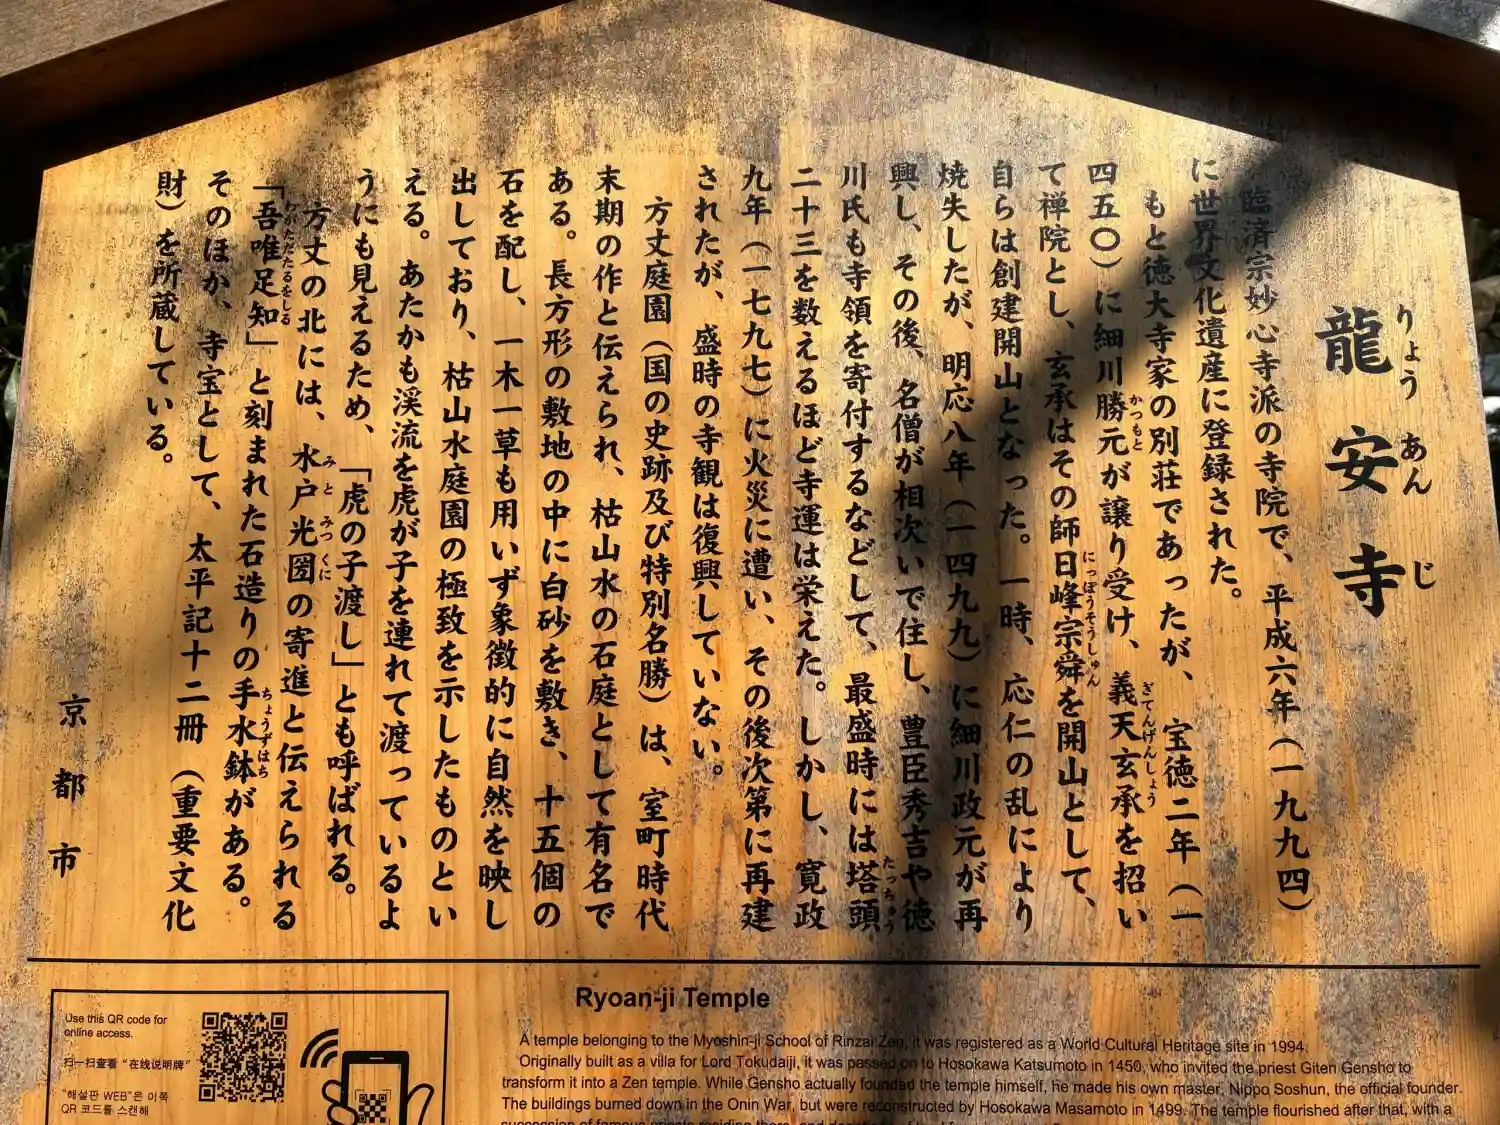 龍安寺
りょうあんじ
臨済宗妙心寺派の寺院で、平成六年(一九九四)
に世界文化遺産に登録された。
もと徳大寺家の別荘であったが、宝徳二年(一
四五〇)に細川勝元が譲り受け、義天玄承を招い
かつもと
ぎてんげんしょう
て禅院とし、玄承はその師日峰宗舜を開山として、
にっぽうそうしゅん
自らは創建開山となった。一時、応仁の乱により
焼失したが、明応八年(一四九九)に細川政元が再
興し、その後、名僧が相次いで住し、豊臣秀吉や徳
川氏も寺領を寄付するなどして、最盛時には塔頭
たっちゅう
二十三を数えるほど寺運は栄えた。しかし、寛政
九年(一七九七)に火災に遭い、その後次第に再建
されたが、盛時の寺観は復興していない。
方丈庭園(国の史跡及び特別名勝)は、室町時代
末期の作と伝えられ、枯山水の石庭として有名で
ある。長方形の敷地の中に白砂を敷き、十五個の
石を配し、一木一草も用いず象徴的に自然を映し
出しており、枯山水庭園の極致を示したものとい
える。あたかも渓流を虎が子を連れて渡っているよ
うにも見えるため、「虎の子渡し」とも呼ばれる。
方丈の北には、水戸光圀の寄進と伝えられる
みとみつくに
「吾唯足知」と刻まれた石造りの手水鉢がある。
わがただたるをしる
ちょうずはち
そのほか、寺宝として、太平記十二冊(重要文化
財)を所蔵している。
京都市
Ryoan-ji Temple
A temple belonging to the Myoshin-ji School of Rinzai Zen, it was registered as a World Cultural Heritage site in 1994.
Originally built as a villa for Lord Tokudaiji, it was passed on to Hosokawa Katsumoto in 1450, who invited the priest Giten Gensho to
transform it into a Zen temple. While Gensho actually founded the temple himself, he made his own master, Nippo Soshun, the official founder.
The buildings burned down in the Onin War, but were reconstructed by Hosokawa Masamoto in 1499. The temple flourished after that, with a
Use this QR code for
online access.
扫一扫查看“在线说明牌”
"해설판 WEB"은 이쪽
QR 코드를 스캔해